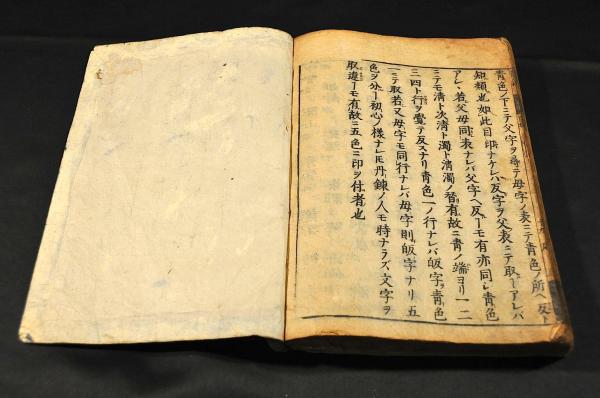 青色ノ下ニテ父字ヲ尋テ母字ノ表ニテ青色ノ所ヘ反ト
知類也如此目印ナケレハ反字ヲ父表ニテ取アレバ
アレ若父母同表ナレバ父字ヘ反モ有亦同シ青色
ニテモ清ト次清ト濁ト清濁ノ替有故ニ青ノ端ヨリ一二
三四ト行ヲ覺テ反スナリ青色一ノ行ナレバ皈字ヲ青色
一ニテ取若又母字モ同行ナレバ母字則皈字ナリ五
色ヲ分初心ノ様ナレ丹錬ノ人モ時ナラズ文字ヲ
取違モ有故ニ五色ニ印ヲ付者也